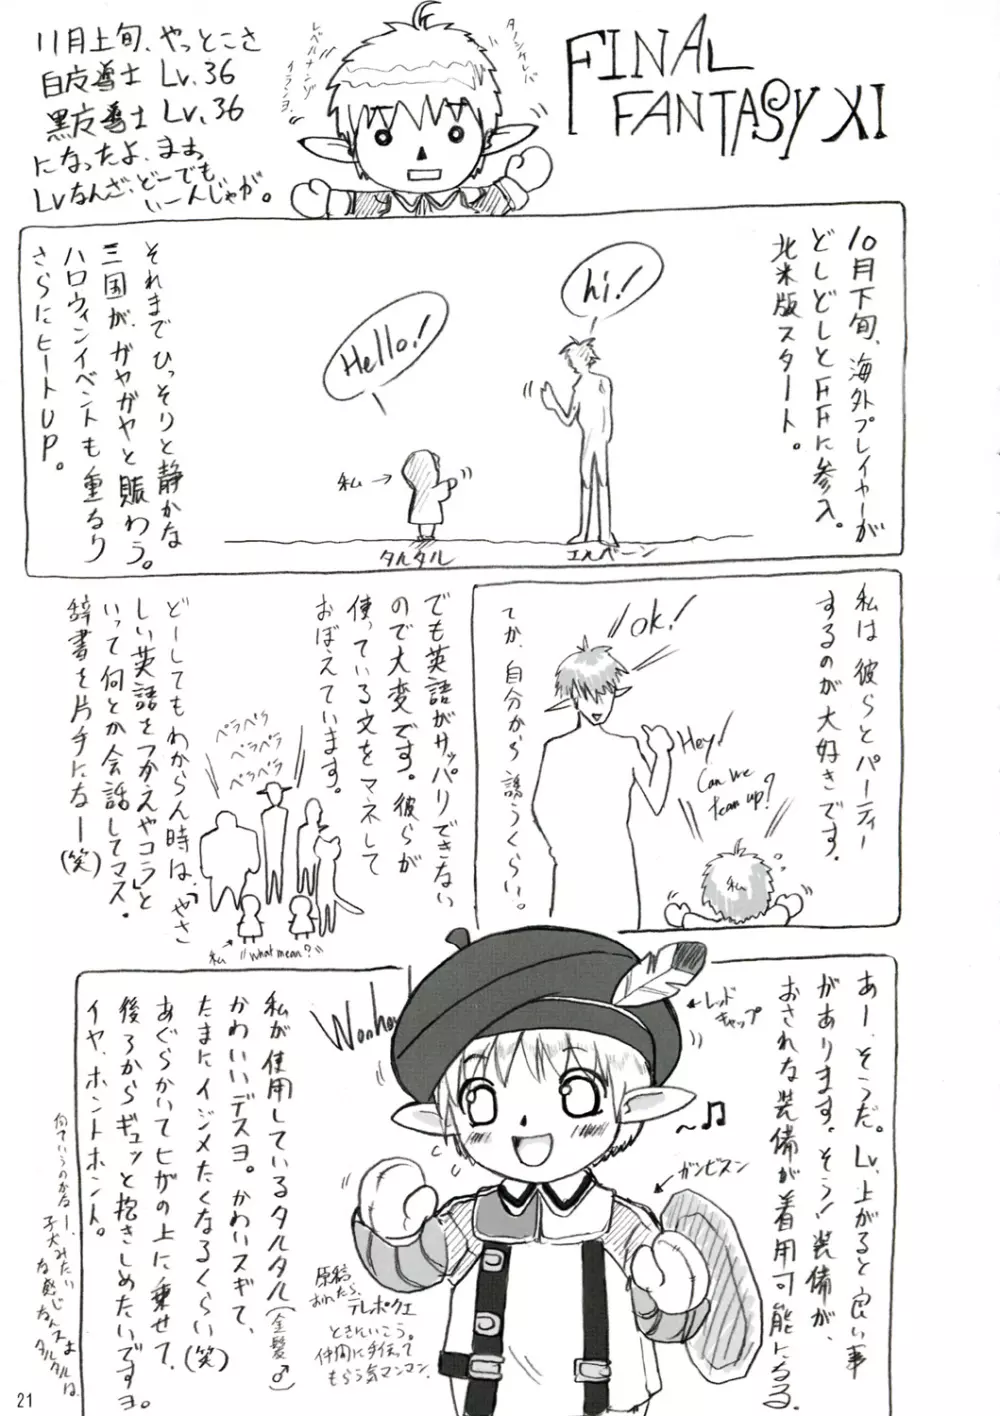 11月上旬、やっとこさ
白魔導士 Lv.36
黒魔導士 Lv.36
になったよ、まぁ
Lvなんざ、どーでも
いーんじゃが。
レベルナンゾ
イランヨ。
タノシケレバ
FINAL
FANTASY XI
10月下旬、海外プレイヤーが
どしどしとFFに参入。
北米版スタート。
hi!
Hello!
私→
タルタル
エルバーン
それまでひっそりと静かな
三国が、ガヤガヤと賑わう。
ハロウィンイベントも重なり
さらにヒートUP。
私は彼らとパーティー
するのが大好きです。
OK!
Hey!
Can we
team up?
私
てか、自分から誘うくらい。
でも英語がサッパリできない
ので大変です。彼らが
使っている文をマネして
おぼえています。
ペラペラ
ペラペラ
ペラペラ
私
"what mean?"
どーしてもわからん時は、「やさ
しい英語をつかえやコラ」と
いって何とか会話してマス。
辞書を片手になー(笑)
あー、そうだ。Lv.上がると良い事
があります。そう!装備が、
おされな装備が着用可能になる。
レッド
キャップ
ガンビスン
~♫
私が使用しているタルタル(金髪♂)
かわいいデスヨ。かわいスギて、
たまにイジメたくなるくらい(笑)
あぐらかいてヒザの上に乗せて、
後ろからギュッと抱きしめたいですヨ。
イヤ、ホントホント。
何ていうのかなー、
子犬みたい
な感じなんスよ
タルタルは。
原稿
おわったら、
テレポクエ
ときにいこう。
仲間に手伝って
もらう気マンマン。
21